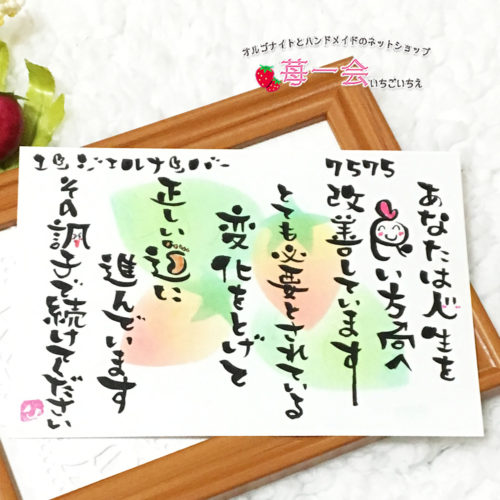 オルゴナイトとハンドメイドのネットショップ
苺一会
いちごいちえ
エンジェルナンバー
7575
あなたは人生を
良い方向へ
改善しています
とても必要とされている
変化をとげて
正しい道に
進んでいます
その調子で続けてください